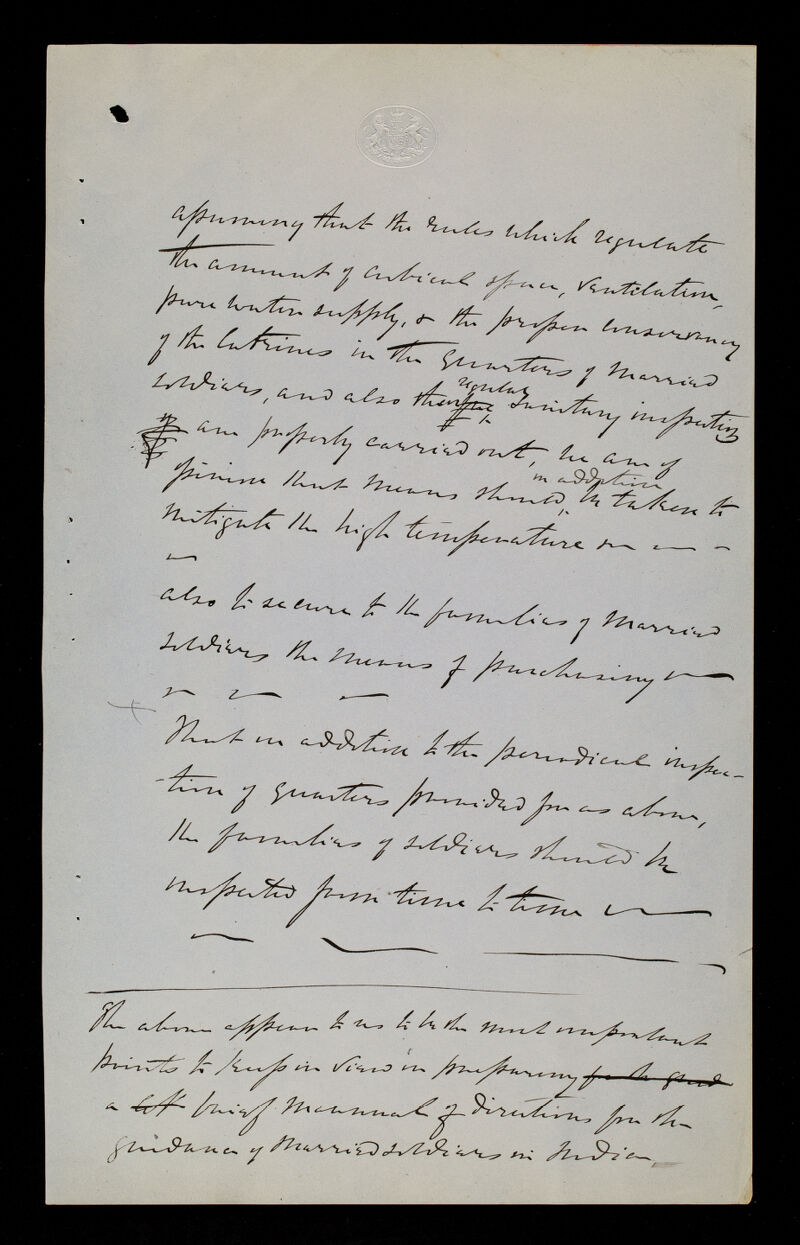 assuming that the rules which regulate
the amount of cubical space, ventilation,
pure water supply, & the proper conservancy
of the latrines in the quarters of Married
regular
soldiers, and also the sanitary inspection
are properly carried out, we are of
in addition
opinion that means should be taken to
mitigate the high temperature
also to secure to the families of Married
soldiers the means of purchasing
That in addition to the periodical inspec-
-tion of quarters provided for as above,
the families of soldiers should be
inspected from time to time
The above appear to us to be the most important
points to keep in view in preparing for the
a brief Manual of directions for the
guidance of Married soldiers in India